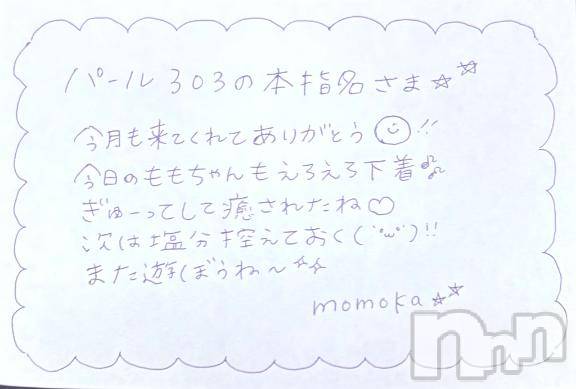 パール303の本指名さま☆☆
今月も来てくれてありがとう☺!!
今日のももちゃんもえろえろ下着♫
ぎゅーってして癒されたね♡
次は塩分控えておく(´ω`)!!
また遊ぼうね〜☆☆
momoka☆☆
nnn